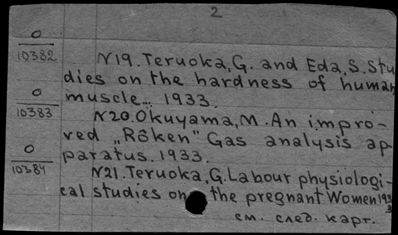 2
0
10382
N19. Teruoka, G. and Eda, S. Stu
dies on the hardness of human
muscle... 1933.
0
10383
N20. Okuyama, M. An impro-
ved „Rôken" Gas analysis ap
paratus. 1933.
0
10384
N21. Teruoka, G. Labour physiologi-
cal studies on the pregnant Women 193
см. след. карт.